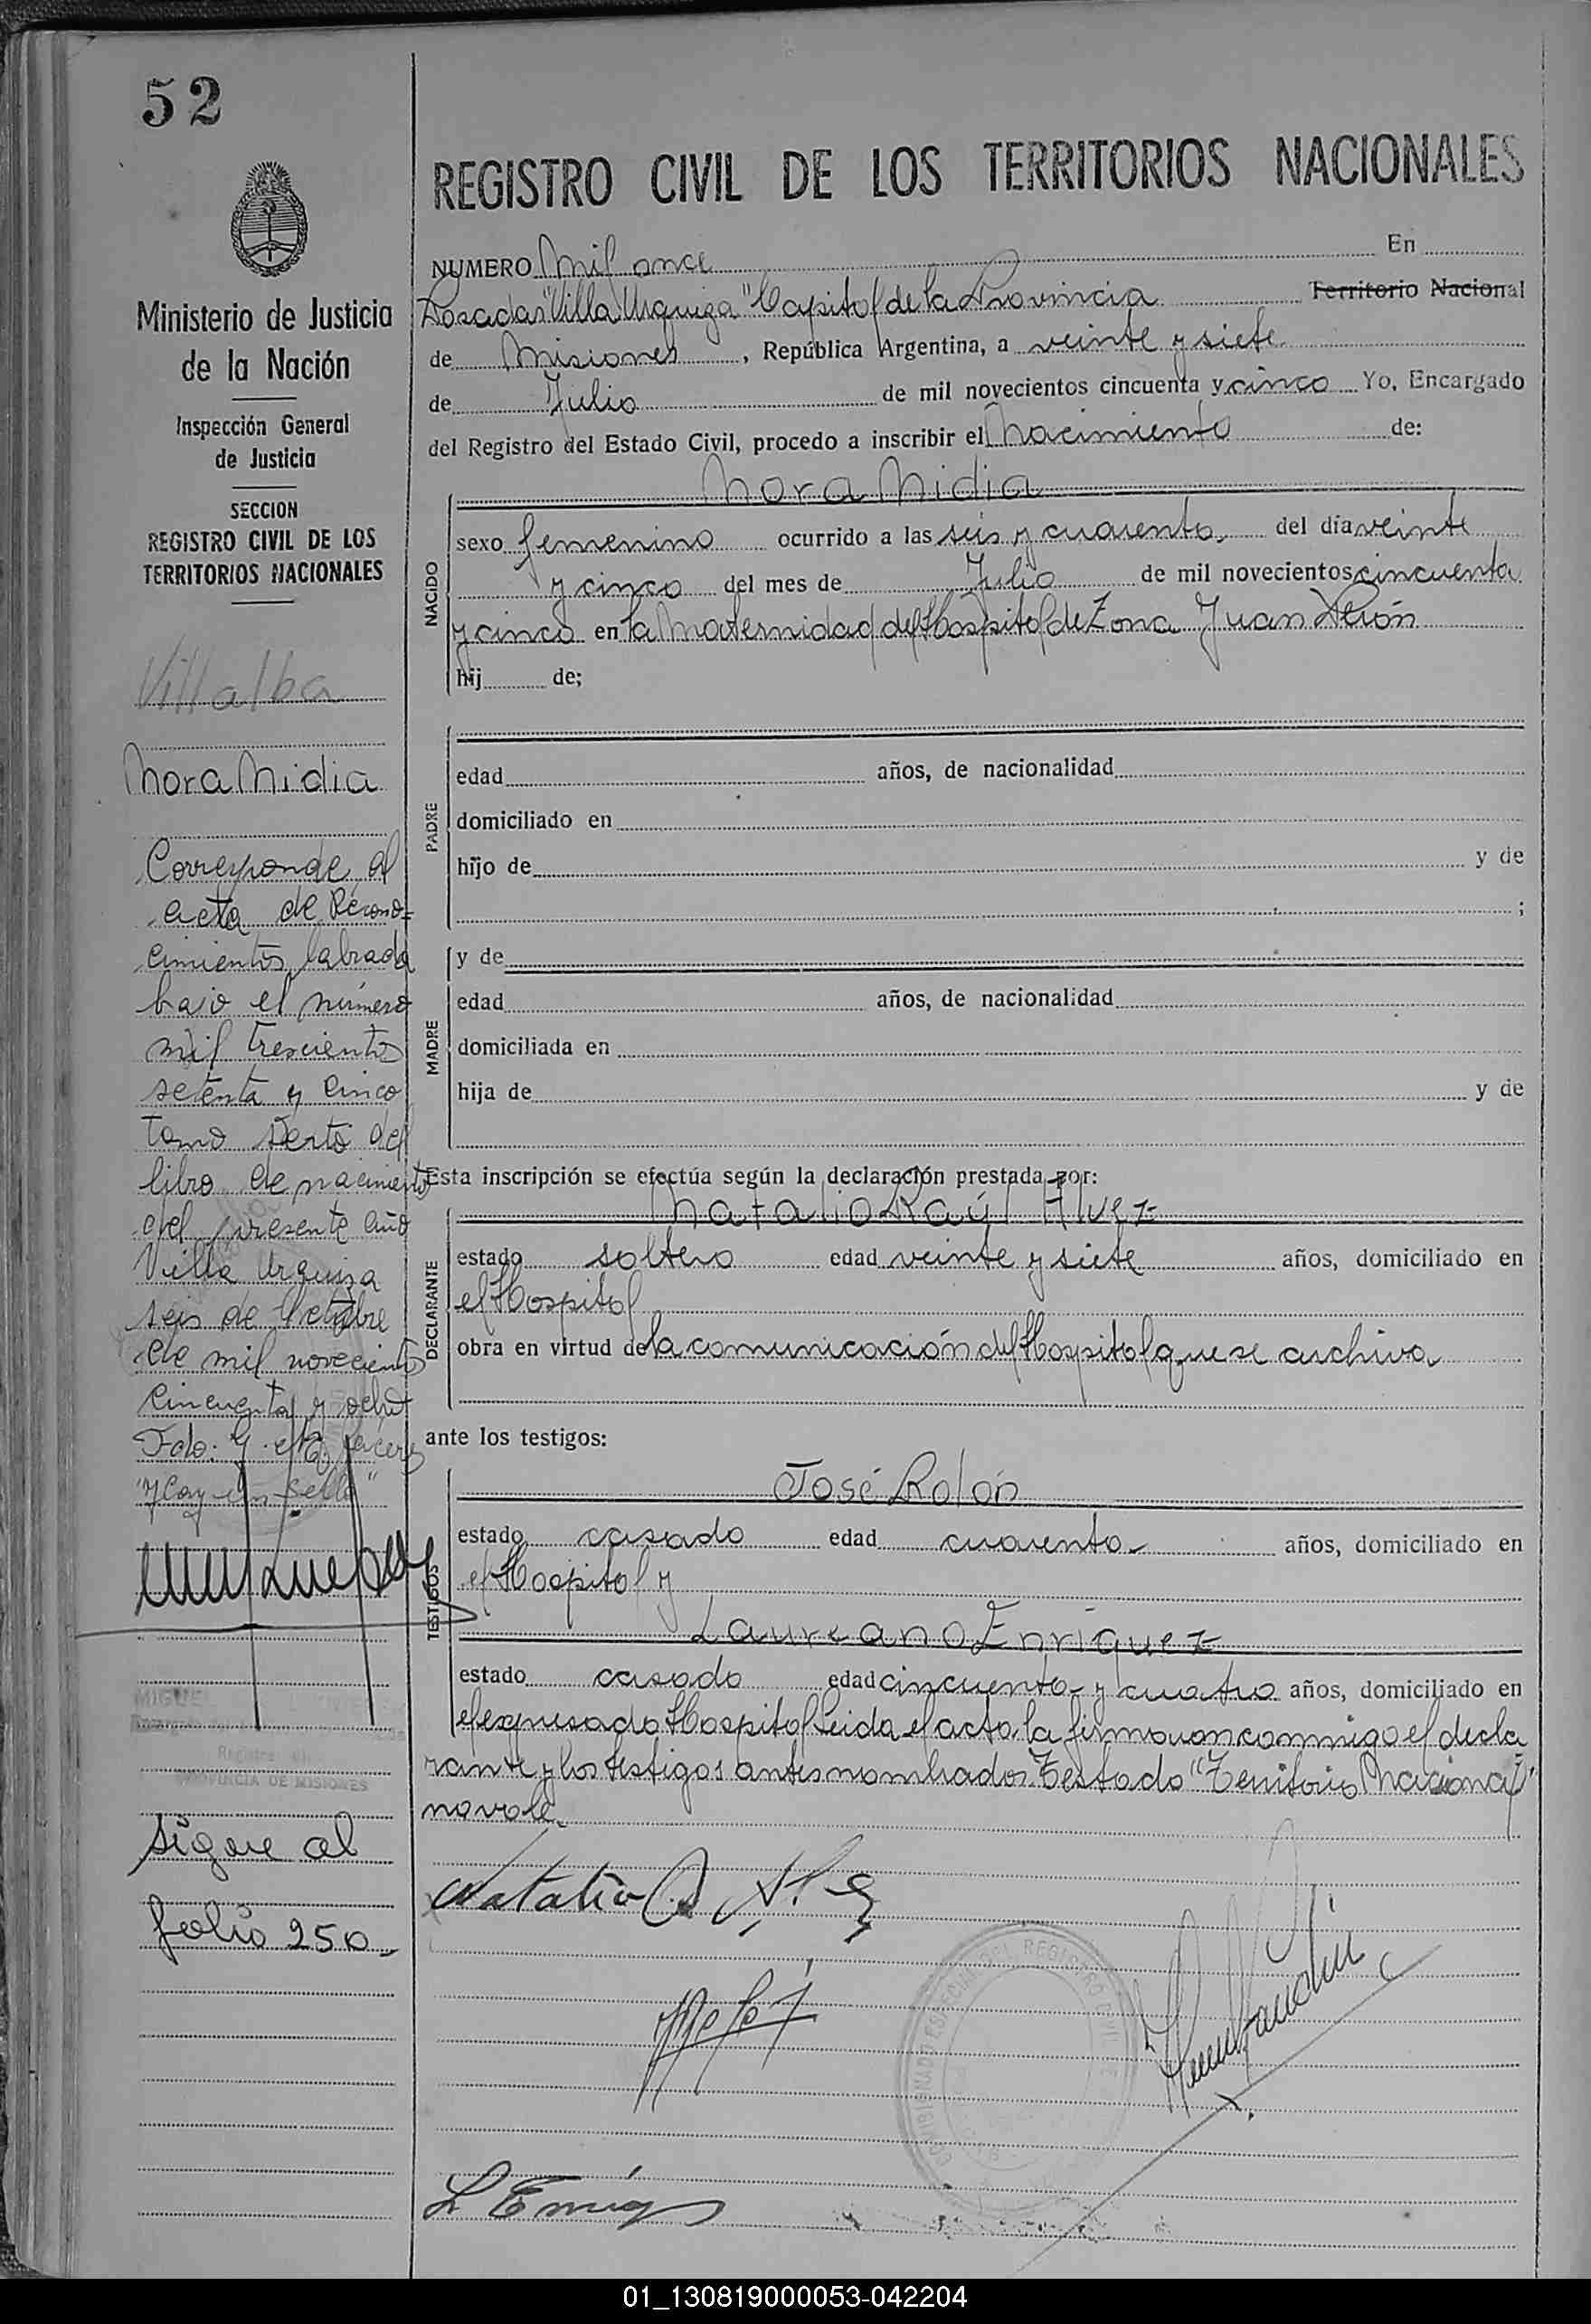 52
Ministerio de Justicia
de la Nación
Inspección General
de Justicia
SECCION
REGISTRO CIVIL DE LOS
TERRITORIOS NACIONALES
Villalba
Nora Nidia
Corresponde al
acta de Recono=
cimientos labrada
bajo el número
mil trescientos
setenta y cinco
tomo sexto del
libro de nacimiento
del presente año
Villa Urquiza
seis de Octubre
de mil novecientos
cincuenta y ocho
Fdo:
"Hay un sello"
MIGUEL
PROVINCIA DE MISIONES
Sigue al
folio 250-
REGISTRO CIVIL DE LOS TERRITORIOS NACIONALES
NUMERO Mil once En
Posadas "Villa Urquiza" Capital de la Provincia Territorio Nacional
de Misiones, República Argentina, a veinte y siete
de Julio de mil novecientos cincuenta y cinco Yo, Encargado
del Registro del Estado Civil, procedo a inscribir el Nacimiento de:
Nora Nidia
NACIDO
sexo femenino ocurrido a las seis y cuarenta del día veinte
y cinco del mes de Julio de mil novecientos cincuenta
y cinco en la Maternidad del Hospital de Zona Juan Perón
hij de;
PADRE
edad años, de nacionalidad
domiciliado en
hijo de y de
;
MADRE
y de
edad años, de nacionalidad
domiciliada en
hija de y de
Esta inscripción se efectúa según la declaración prestada por:
Natalio Raúl Alvez
DECLARANTE
estado soltero edad veinte y siete años, domiciliado en
el Hospital
obra en virtud de la comunicación del Hospital que se archiva
ante los testigos:
José Rolón
TESTIGOS
estado casado edad cuarenta años, domiciliado en
el Hospital y
Laureano Enriquez
estado casado edad cincuenta y cuatro años, domiciliado en
el expresado Hospital Leida el acta la firmaron conmigo el decla
rante y los testigos antes nombrados. Testado "Territorio Nacional"
no vale.
Natalio
L Enriq
01_130819000053-042204